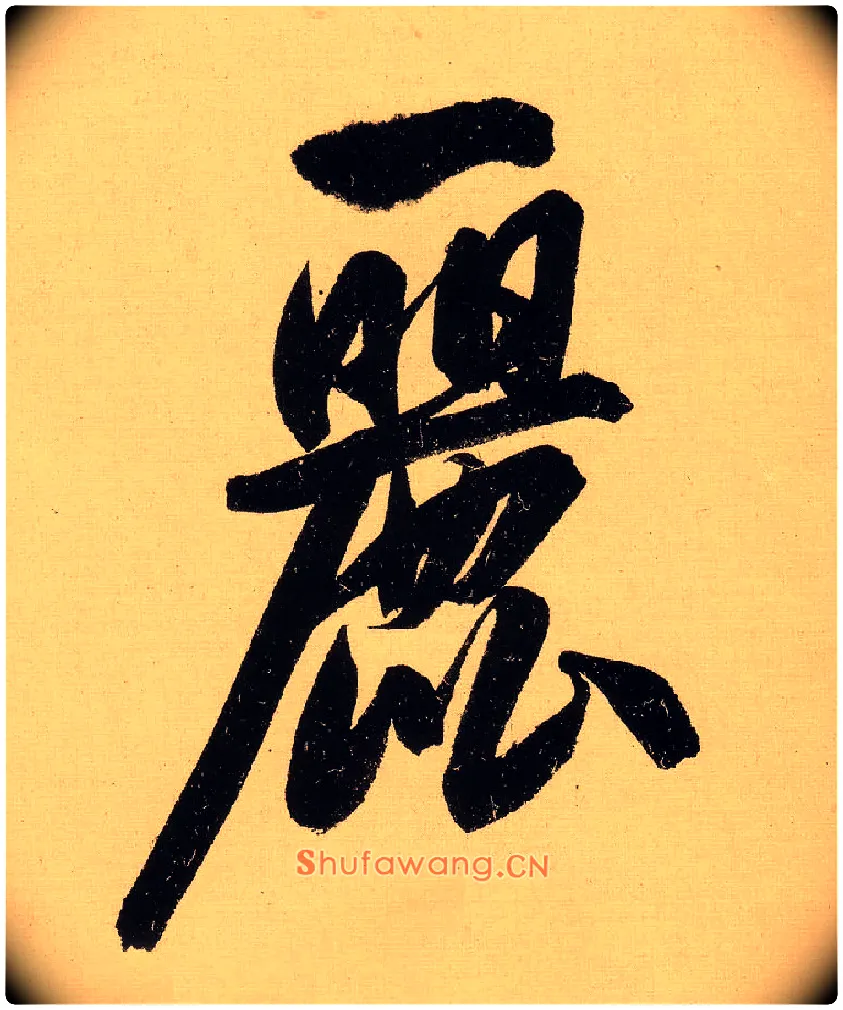 麗
Shufawang.CN